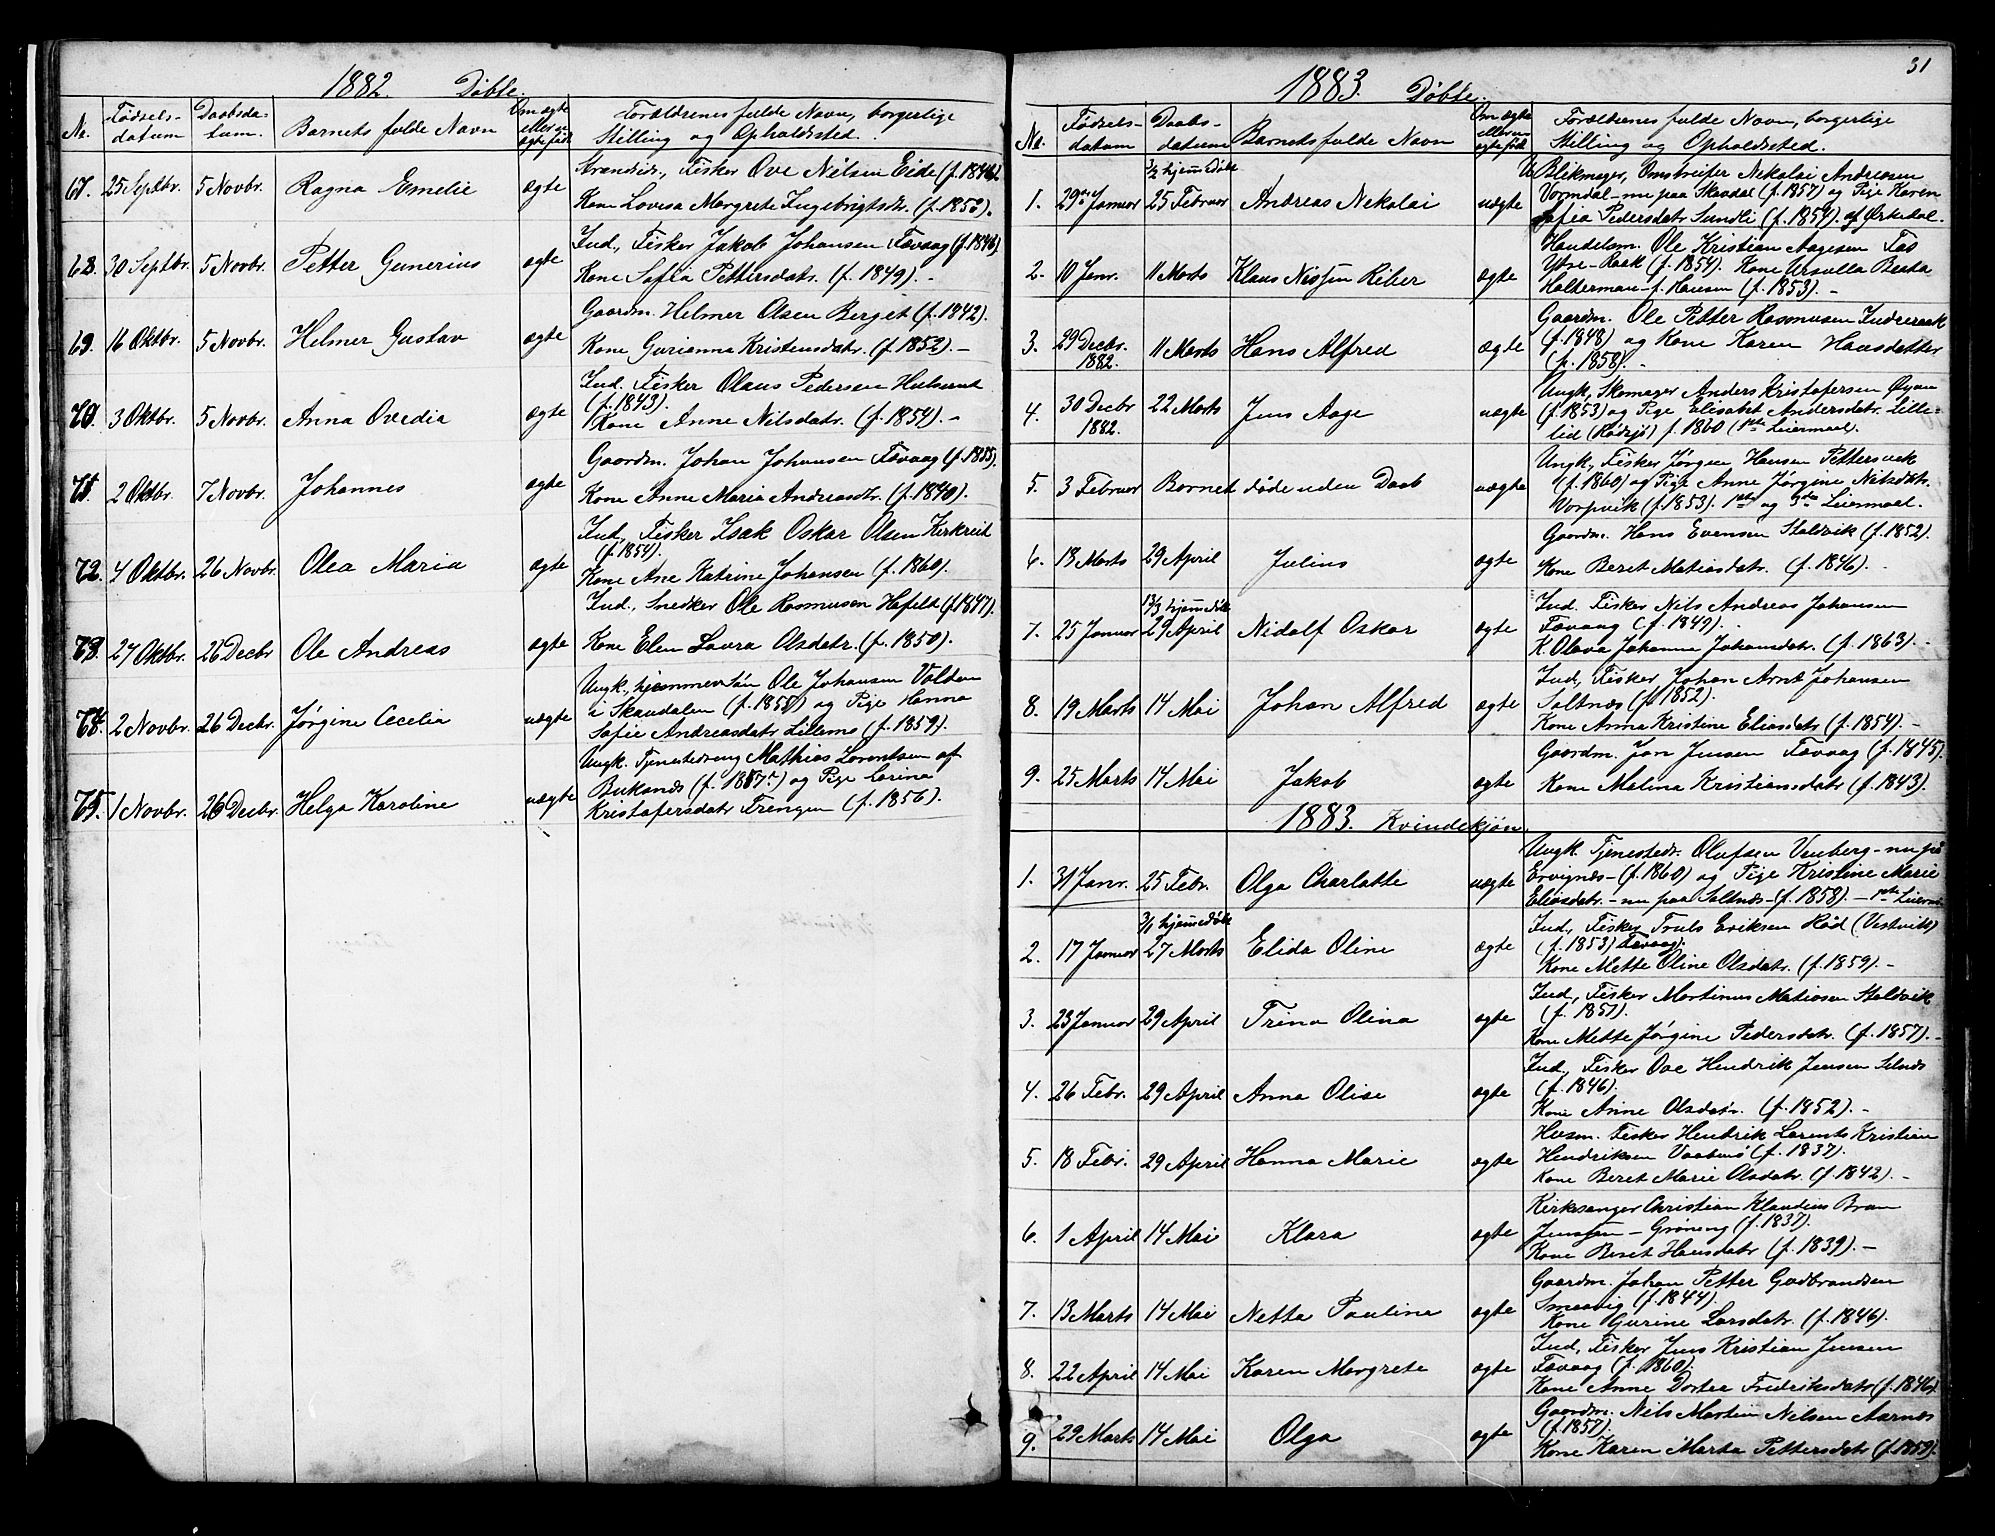 1882. Døbte.
No. Fødsels-datum Daabsda-tum. Barnets fulde Navn Om ægte eller u-ægte født Forældrenes fulde Navn, borgerlige Stilling og Opholdssted.
67. 25 Septbr. 5 Novbr. Ragna Emelie ægte Strandsid., Fisker Ove Nilsen Eide
Kone Lovisa Margrete Ingebrigtsdtr. (f. 1853).
68. 30 Septbr. 5 Novbr. Petter Gunerius ægte Ind., Fisker Jakob Johansen Tævaag (f. 1846)
Kone Sofia Pettersdatr. (f. 1849). -
69. 16 Oktbr. 5 Novbr. Helmer Gustav ægte Gaardm. Helmer Olsen Berget (f. 1842).
Kone Gurianna Kristensdatr. (f. 1852). -
70. 3 Oktbr. 5 Novbr. Anna Ovedia ægte Ind. Fisker Olaus Pedersen
(f. 1843).
Kone Anne Nilsdatr. (f. 1854). -
71. 2 Oktbr. 7 Novbr. Johannes ægte Gaardm. Johan Johansen Tævaag (f. 1838).
Kone Anne Maria Andreasdtr. (f. 1840).
72. 4 Oktbr. 26 Novbr. Olea Maria ægte Ind., Fisker Isak Oskar Olsen
(f. 1854).
Kone Ane Katrine Johansen (f. 1860).
73. 27 Oktbr. 26 Decbr Ole Andreas ægte Ind., Snedker Ole Rasmusen Hafeld (f. 1847).
Kone Elen Laura Olsdatr. (f. 1850).
74. 2 Novbr. 26 Decbr. Jørgine Cecelia uægte Ungk., hjemmev. Søn Ole Johansen Valden
i Skaudalen (f. 1855) og Pige Hanna
Sofie Andreasdatr Lillemo (f. 1859).
75. 1 Novbr. 26 Decbr. Helga Karoline uægte Ungk. Tjenestedreng Mathias Lorentsen af
(f. 1857) og Pige Larina
Kristofersdatr Trengen (f. 1856).
31
1883. Døbte.
No. Fødsels-datum Daabs-datum Barnets fulde Navn Om ægte eller uægte født Forældrenes fulde Navn, borgerlige Stilling og Opholdssted.
3/2 hjemmedøbt
1. 29de Januar 25 Februar Andreas Nekolai uægte Blikmager, Omstreifer Nikolai Andreasen
Vormdal - nu paa Skaudal (f. 1857) og Pige Karen
Sofia Pedersdatr Sundli (f. 1854). af Ørkedal.
2. 10 Janr. 11 Marts Klaus Nissen Riber ægte Handelsm. Ole Kristian Aagesen
Ytre-Raak (f. 1854). Kone Ursulla Berta
Halterman f. Hansen (f. 1853). -
3. 29 Decbr. 1882. 11 Marts Hans Alfred ægte Gaardm. Ole Petter Rasmusen Indreraak
(f. 1848) og Kone Karen Hansdatter
(f. 1858). -
4. 30 Decbr 1882. 22 Marts Jens Aage uægte Ungk, Skomager Anders Kristofersen Øyan
(f. 1853) og Pige Elisabet Andersdatr. Lille-
lid (Rødsjø) f. 1860 (1ste Leiermaal.
5. 3 Februar Barnet døde uden Daab uægte Ungk., Fisker Jørgen Hansen Pettersvik
(f. 1860) og Pige Anne Jørgine Nilsdtr.
Vorpvik (f. 1853). 1ste og 3de Leiermaal.
6. 18 Marts 29 April Julius ægte Gaardm. Hans Evensen Staldvik (f. 1852).
Kone Beret Matiasdatr. (f. 1846). -
13/3 hjemmedøbt
7. 25 Januar 29 April Nidolf Oskar ægte Ind. Fisker Nils Andreas Johansen
Tævaag (f. 1849). -
K. Olava Johanna Johansdatr. (f. 1863). -
8. 19 Marts 14 Mai Johan Alfred ægte Ind, Fisker Johan Arnt Johansen
Saltnæs (f. 1852).
Kone Anna Kristine Eliasdatr (f. 1854). -
9. 25 Marts 14 Mai Jakob ægte Gaardm. Jon Jensen Tævaag (f. 1845).
Kone Malina Kristiansdatr (f. 1843).
1883. Kvindekjøn.
1. 31 Janr. 25 Febr. Olga Charlotte uægte Ungk. Tjenestedr. Olufsen Venberg - nu på
Ervignæs - (f. 1860) og Pige Kristine Marie
Eliasdatr. - nu paa Saltnæs - (f. 1858). - 1ste Leierm.
3/1 hjemmedøbt
2. 17 Januar 27 Marts Elida Oline ægte Ind., Fisker Truls Eriksen Rød (Vestvik)
(f. 1853) Tævaag.
Kone Mette Oline Olsdatr. (f. 1859). -
3. 23 Januar 29 April Trina Olina ægte Ind., Fisker Martinus Matiasen Staldvik
(f. 1857).
Kone Mette Jørgine Pedersdatr. (f. 1857). -
4. 26 Febr. 29 April Anna Olise ægte Ind., Fisker Ove Hendrik Jensen Selnæs
(f. 1846).
Kone Anne Olsdatr. (f. 1852). -
5. 18 Febr. 29 April Hanna Marie ægte Husm. Fisker Hendrik Lorents Kristian
Hendriksen (f. 1837).
Kone Beret Marie Olsdatr. (f. 1842). -
6. 1 April 14 Mai Klara ægte Kirkesanger Christian Klaudius Bram
Jenssen - Grøneng (f. 1837).
Kone Beret Hansdatr (f. 1839). -
7. 13 Marts 14 Mai Netta Paulina ægte Gaardm. Johan Petter Gudbrandsen
Smaavig (f. 1844).
Kone Gurine Larsdatr. (f. 1846).
8. 22 April 14 Mai Karen Margrete ægte Ind, Fisker Jens Kristian Jensen
Tævaag (f. 1860).
Kone Anne Dortea Fredriksdatr (f. 1846).
9. 29 Marts 14 Mai Olga ægte Gaardm. Nils Martin Nilsen Aarnæs
(f. 1857).
Kone Karen Marta Pettersdatr (f. 1859).